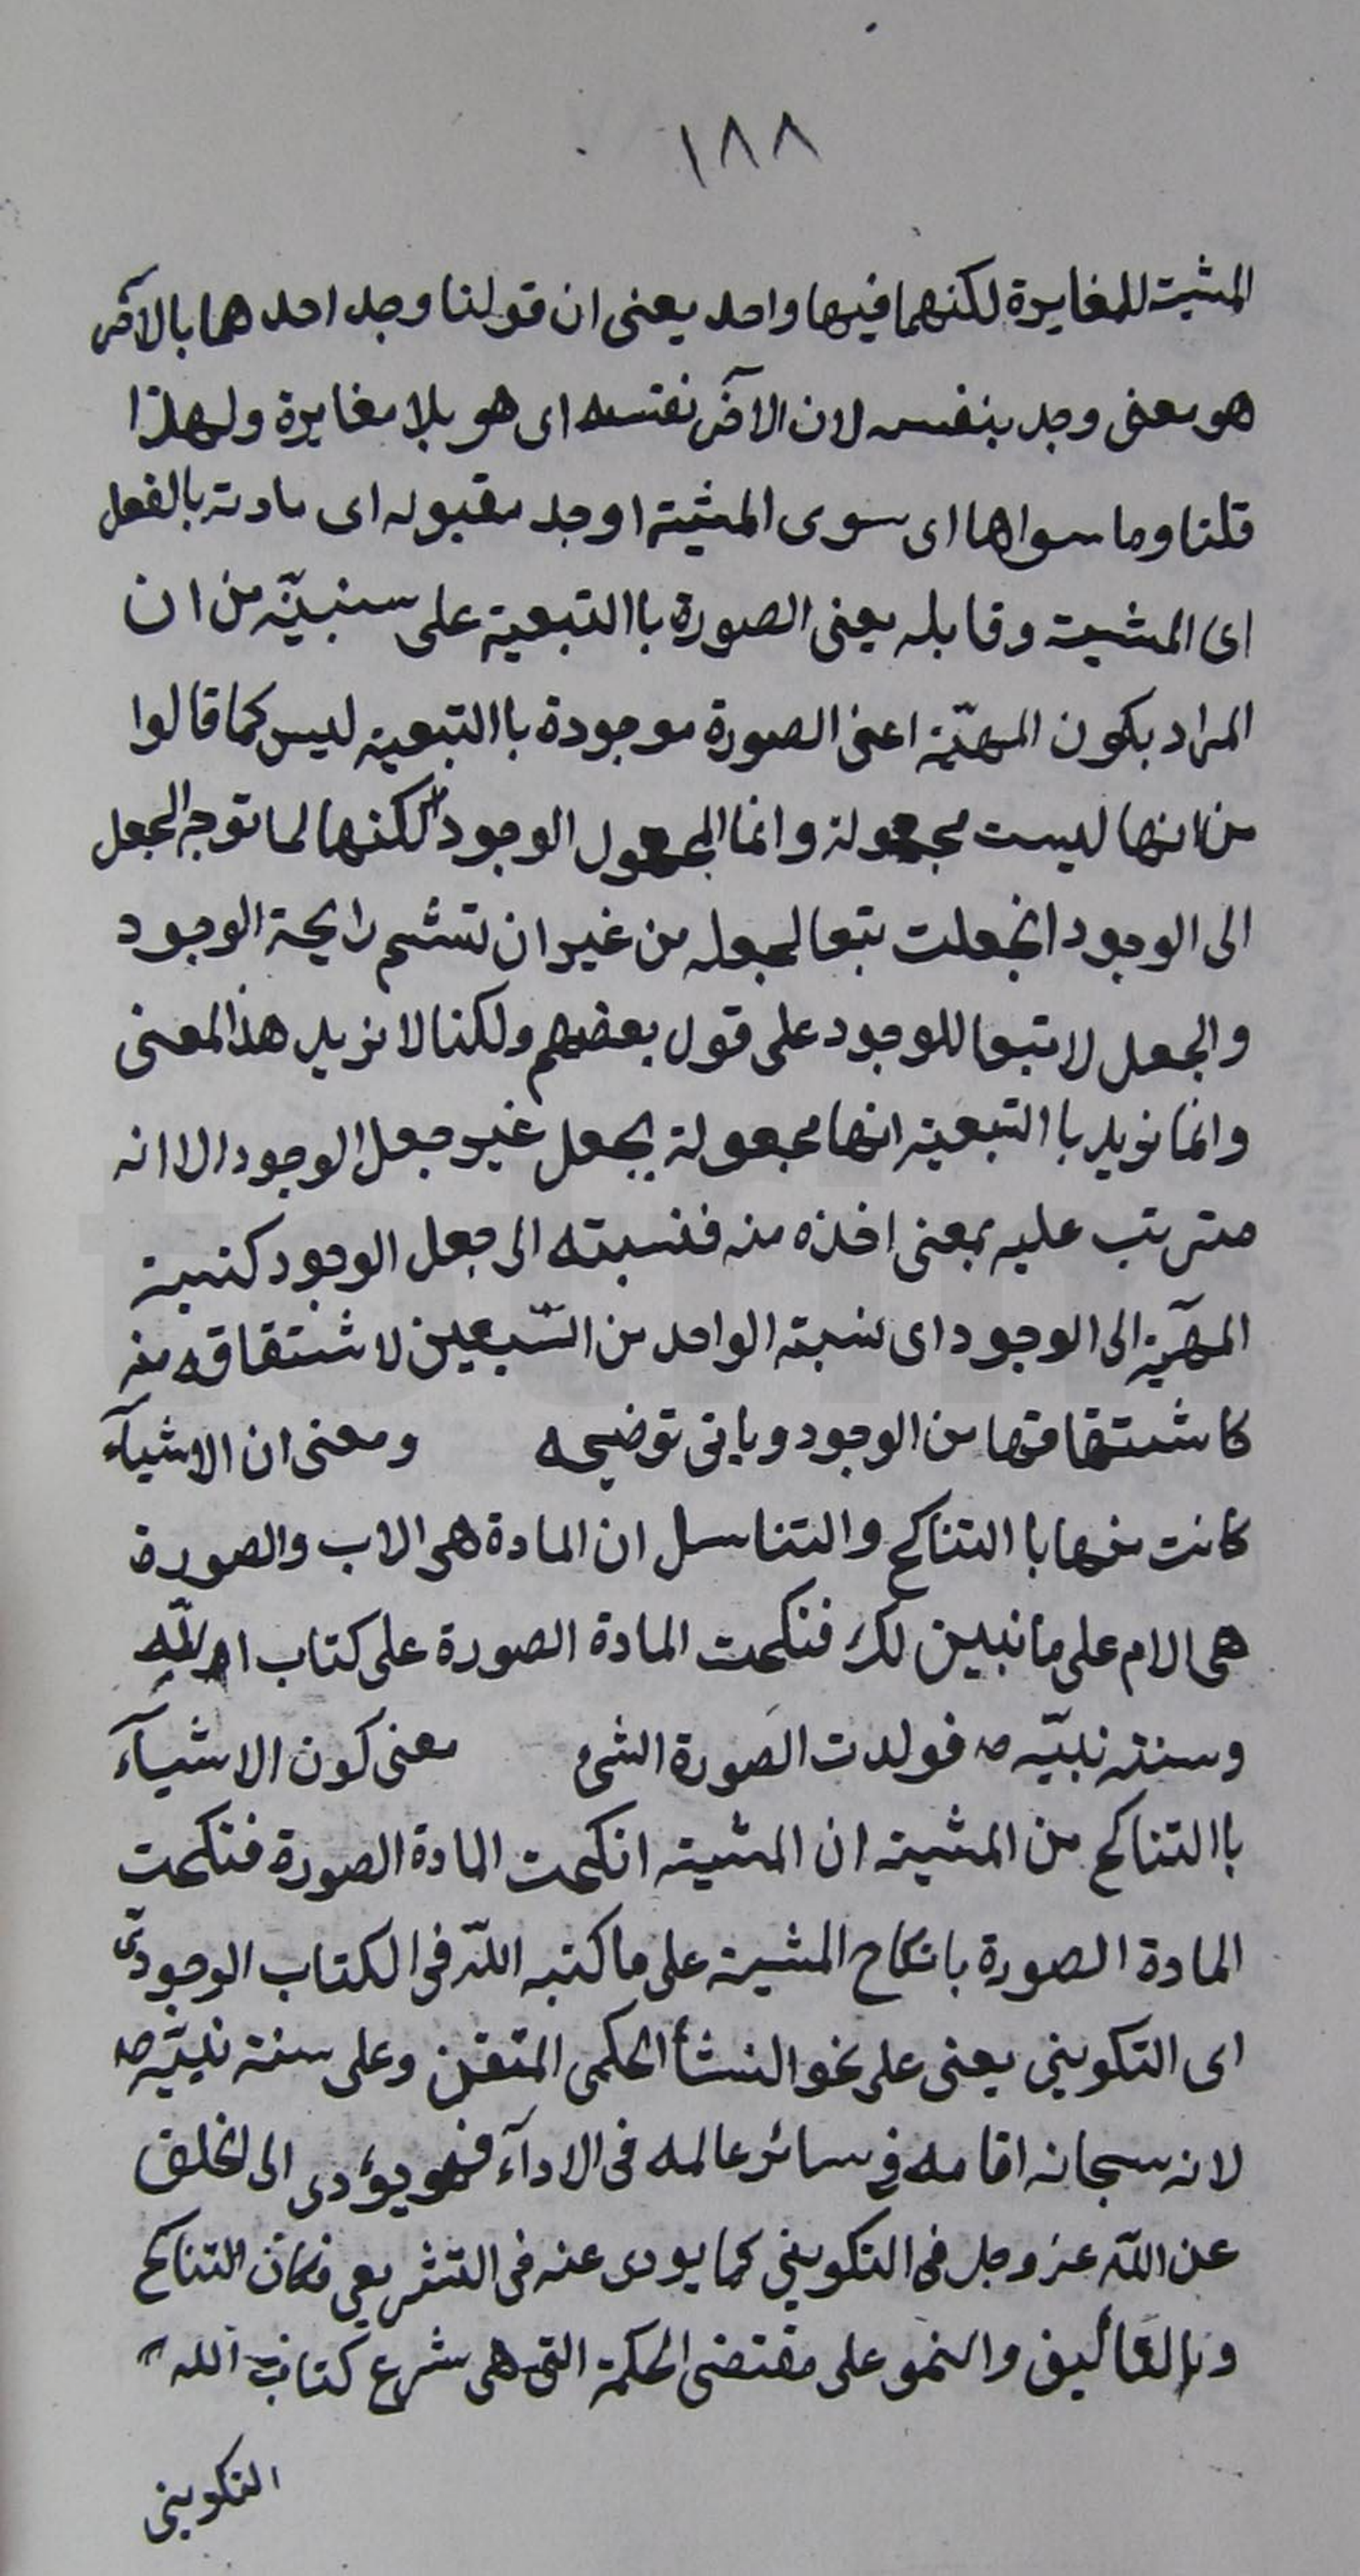 ١٨٨
المشية للمغايرة لكنهما فيها واحد يعنى ان قولنا وجد احدهما بالآخر
هو معنى وجد بنفسه لان الآخر نفسه اى هو بلا مغايرة ولهذا
قلنا وما سواها اى سوى المشية اوجد مقبوله اى مادته بالفعل
اى المشية وقابله يعنى الصورة باالتبعية على سنبيّنه من ان
المراد بكون المهيّة اعنى الصورة موجودة باالتبعية ليس كما قالوا
من انها ليست مجعولة وانما المجعول الوجود لكنها لما توجه الجعل
الى الوجود انجعلت تبعا لجعله من غير ان تشم رايحة الوجود
والجعل لا تبعا للوجود على قول بعضهم ولكنا لا نريد هذا المعنى
وانما نريد باالتبعية انها مجعولة بجعل غير جعل الوجود الا انه
مترتب عليه بمعنى اخذه منه فنسبته الى جعل الوجود كنسبة
المهيّة الى الوجود اى نسبة الواحد من السّبعين لاشتقاقه منه
كاشتقاقها من الوجود وياتى توضيحه ومعنى ان الاشيآء
كانت منها باالتناكح والتناسل ان المادة هى الاب والصورة
هى الام على ما نبين لك فنكحت المادة الصورة على كتاب الله
وسنة نبيّه ص فولدت الصورة الشئ معنى كون الاشيآء
باالتناكح من المشية ان المشية انكحت المادة الصورة فنكحت
المادة الصورة بانكاح المشية على ما كتبه اللّه فى الكتاب الوجودىّ
اى التكوينى يعنى على نحو النشأ الحكمى المتقن وعلى سنة نبيّه ص
لانه سبحانه اقامه فى سائر عالمه فى الادآء فهو يؤدى الى الخلق
عن اللّه عز وجل فى التكوينى كما يودى عنه فى التشريعى فكان التناكح
وبالتأليف والنمو على مقتضى الحكمة التى هى شرع كتاب الله
التكوينى